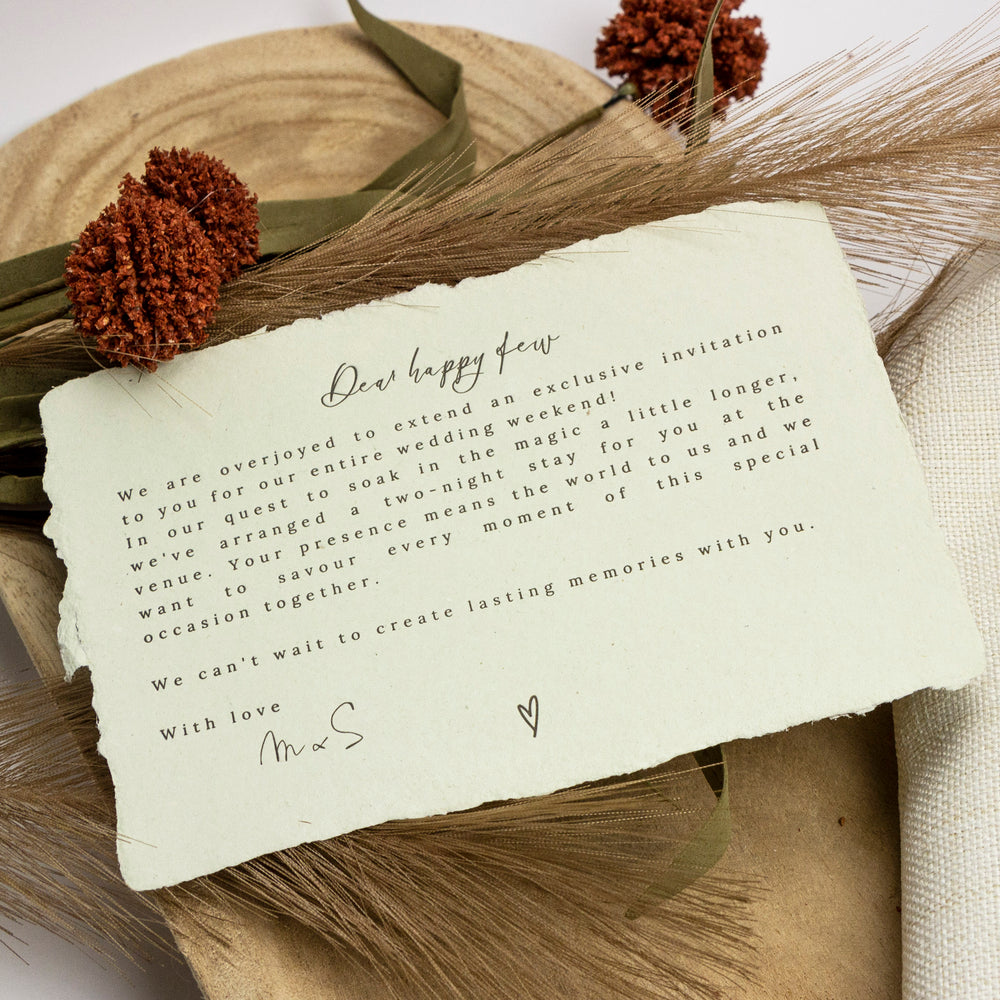 Dear happy few
We are overjoyed to extend an exclusive invitation
to you for our entire wedding weekend!
In our quest to soak in the magic a little longer,
we've arranged a two-night stay for you at the
venue. Your presence means the world to us and we
want to savour every moment of this special
occasion together.
We can't wait to create lasting memories with you.
With love
M & S